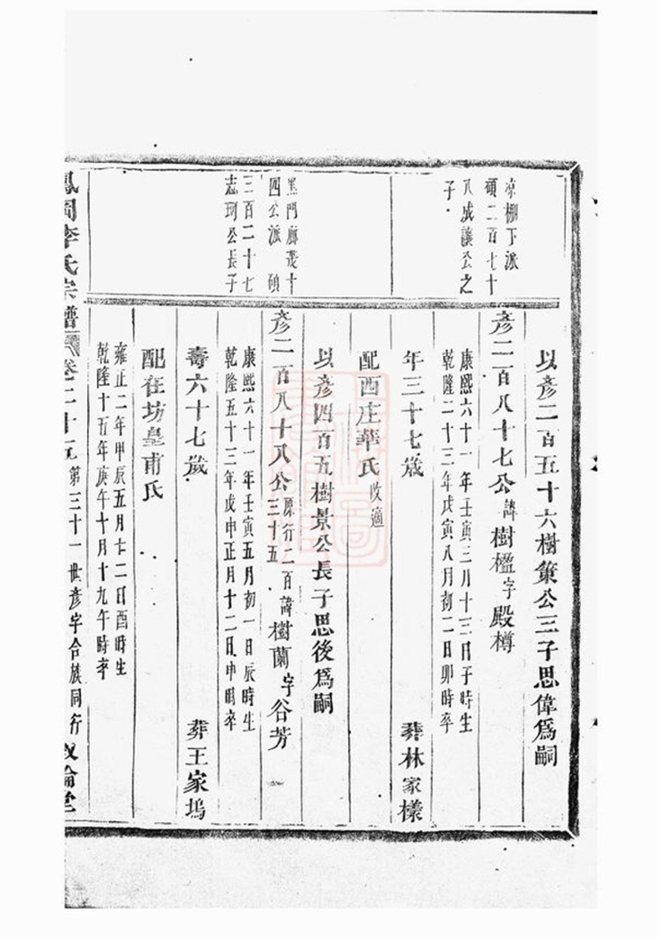 以彥二百五十六樹策公三子思偉爲嗣
京柳下派
碩二百七十
八成讓公之
子
彥二百八十七公諱樹楹字殿樽
康熙六十一年壬寅三月十三日子時生
乾隆二十三年戊寅八月初二日卯時卒
年三十七歲 葬林家樣
配西庄華氏改適
以彥四百五樹景公長子思後爲嗣
黑門廳茂十
四公派碩
三百二十七
志珂公長子
彥二百八十八公原行二百三十五諱樹蘭字谷芳
康熙六十一年壬寅五月初一日辰時生
乾隆五十三年戊申正月十二日申時卒
壽六十七歲 葬王家塢
配在坊皇甫氏
雍正二年甲辰五月廿二日酉時生
乾隆十五年庚午十月十九午時卒
鳳岡李氏宗譜 卷之二十五 第三十一世彥字合族同行 敘倫堂